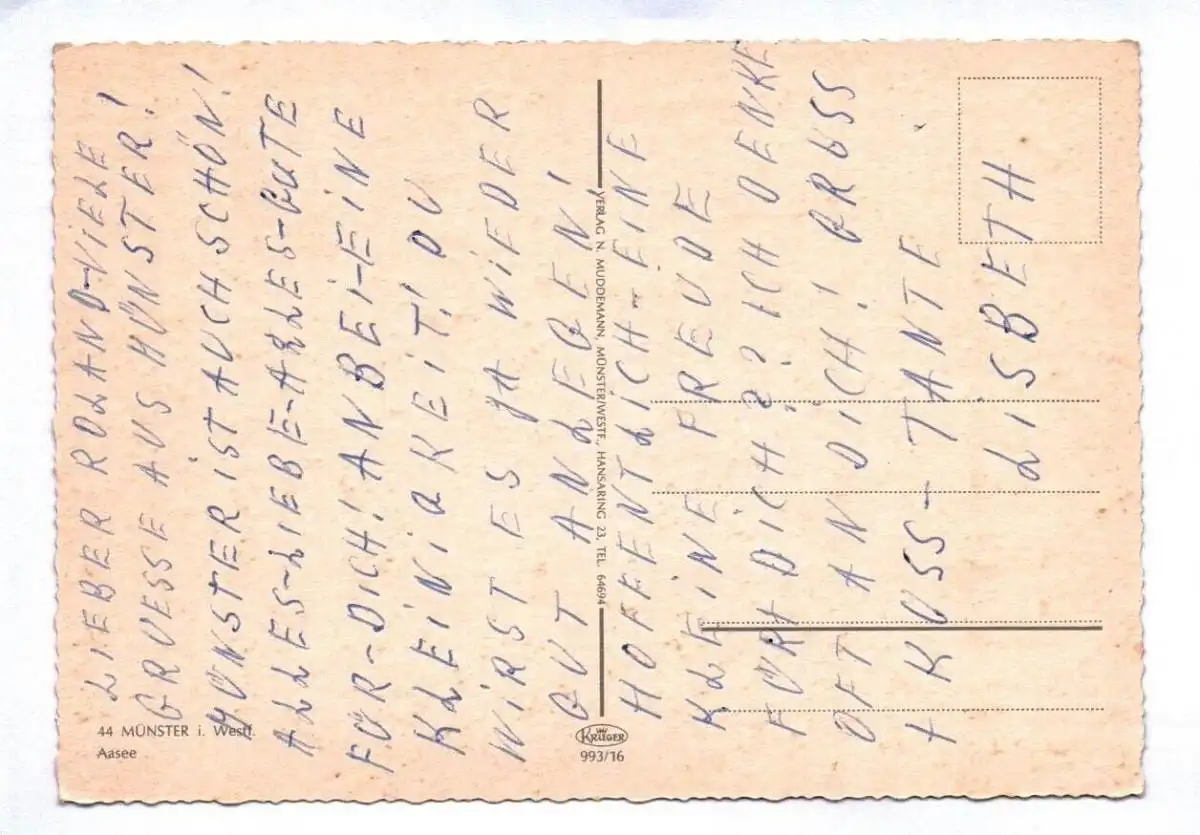 LIEBER ROLAND-VIELE
GRUESSE AUS MÜNSTER!
MÜNSTER IST AUCH SCHÖN!
ALLES-LIEBE-ALLES-GUTE
FÜR-DICH! ANBEI-EINE
KLEINIGKEIT! DU
WIRST ES JA WIEDER
GUT ANLEGEN!
HOFFENTLICH-EINE
KLEINE FREUDE
FÜR DICH?? ICH DENKE
OFT AN DICH! GRUSS
+ KUSS-TANTE
LISBETH
VERLAG N. MUDDEMANN, MÜNSTER/WESTF., HANSARING 23, TEL. 64694
44 MÜNSTER i. Westf.
Aasee
KRÜGER
993/16